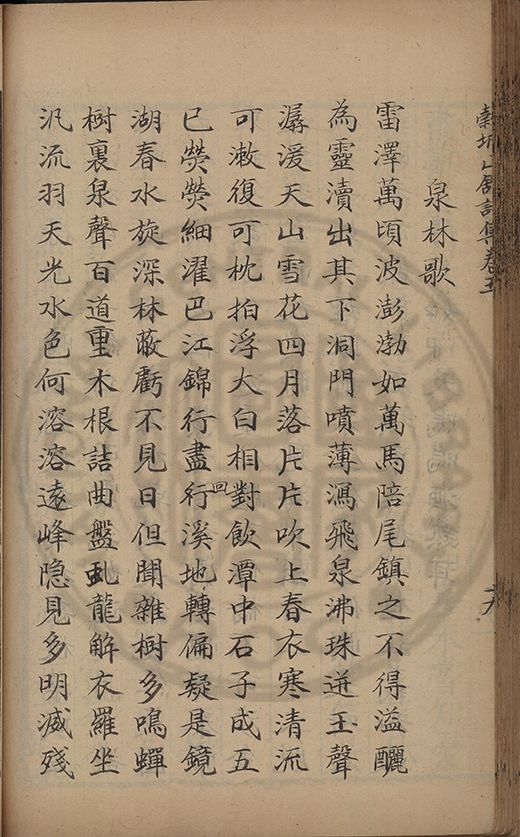 穀城山館詩集卷五
泉林歌
雷澤萬頃波澎渤如萬馬陪尾鎮之不得溢釃
為靈瀆出其下洞門噴薄瀉飛泉沸珠迸玉聲
潺湲天山雪花四月落片片吹上春衣寒清流
可漱復可枕拍浮大白相對飲潭中石子成五
已熒熒細濯巴江錦行盡行回溪地轉偏疑是鏡
湖春水旋深林蔽虧不見日但聞雜樹多鳴蟬
樹裏泉聲百道重木根詰曲盤虬龍解衣羅坐
汎流羽天光水色何溶溶遠峰隐見多明滅殘